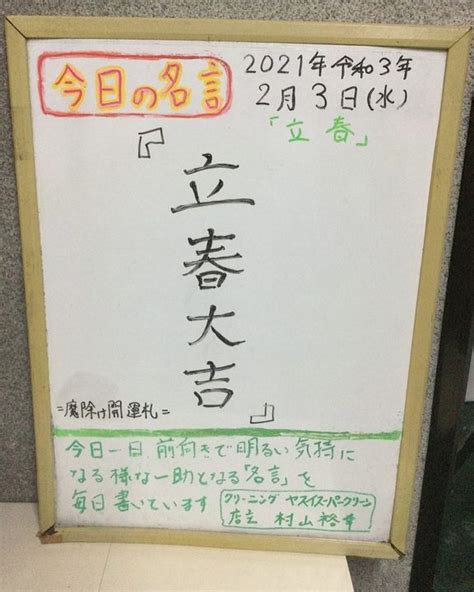 今日の名言
2021年令和3年
2月3日(水)
「立春」
『立春大吉』
=魔除け開運札=
今日一日前向きで明るい気持に
なる様な一助となる「名言」を
毎日書いています
クリーニング ヤスイスーパークリーン
店主 村山裕章